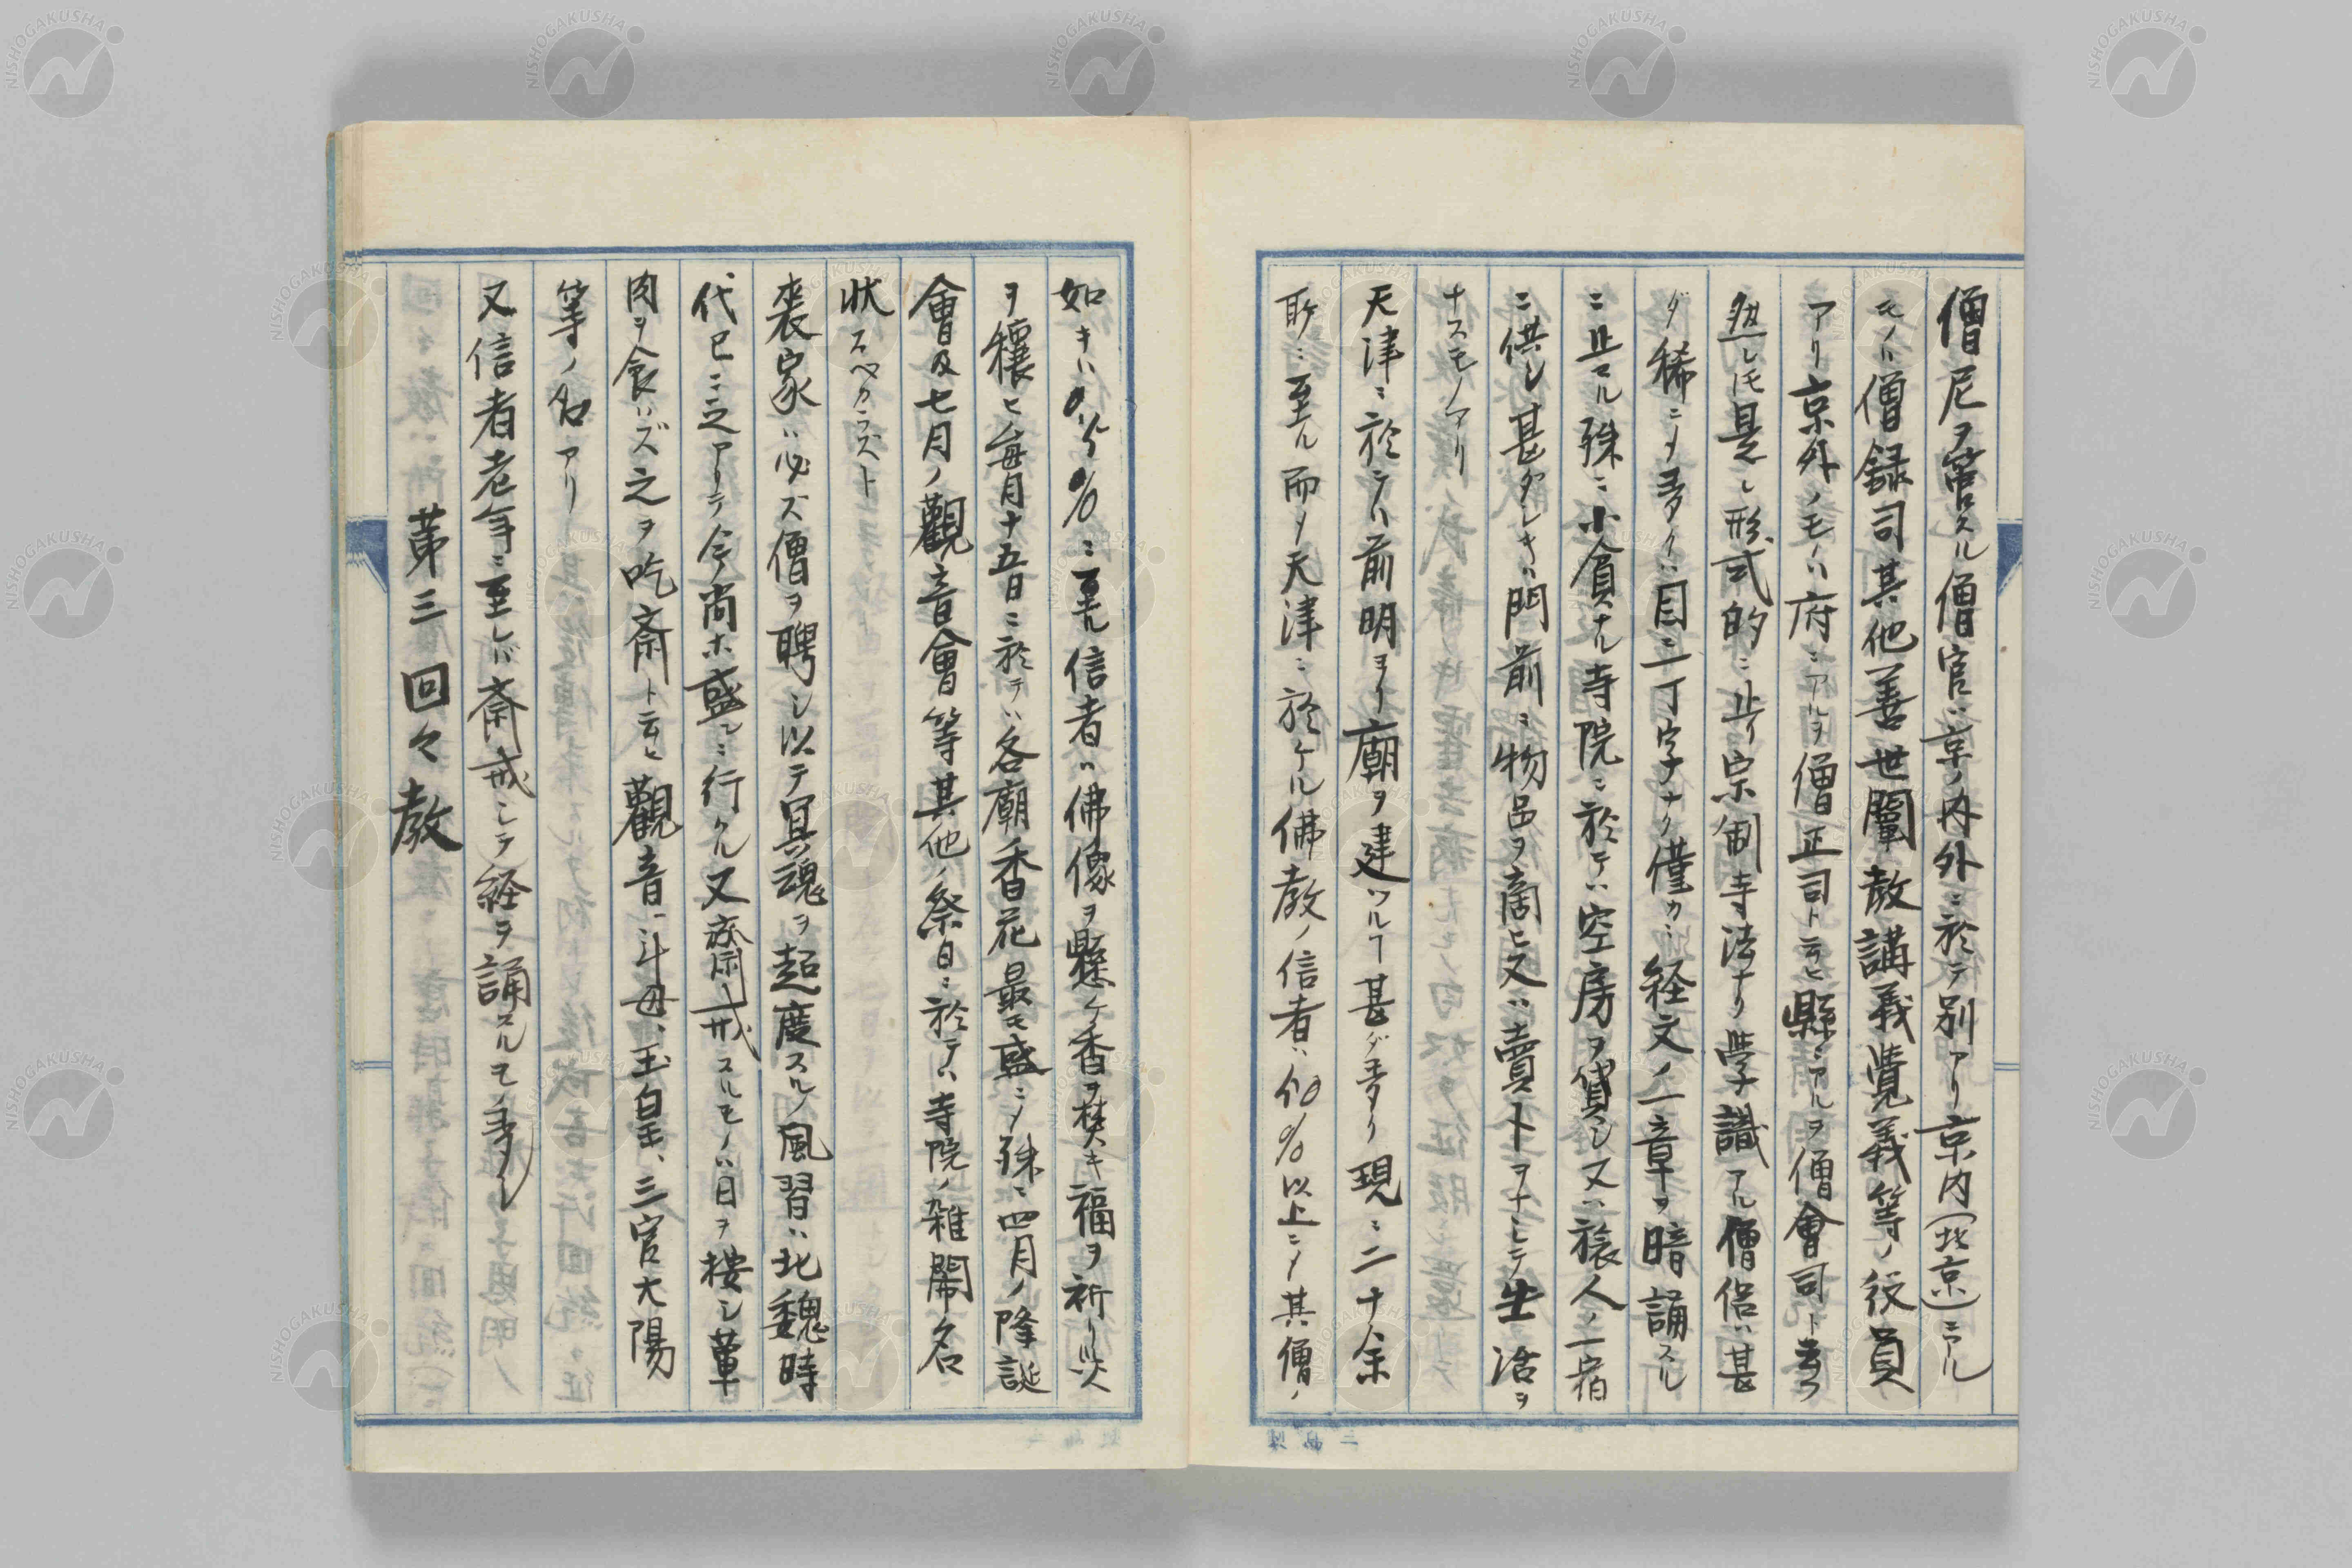 僧尼ヲ管スル僧官ハ京ノ内外ニ於テ別アリ京内(北京)ニアル
モノハ僧録司其他善世闡教講義覚義等ノ役員
アリ京外ノモノハ府ニアルヲ僧正司ト云ヒ縣ニアルヲ僧會司ト云フ
然レ𪜈是レ形式的ニ止リ宗制寺法ナリ學識アル僧侶ハ甚
ダ稀ニメ多クハ目ニ一丁字ナク僅カニ経文ノ一章ヲ暗誦スル
ニ止マル殊ニ小貧ナル寺院ニ於テハ空房ヲ貸シ又ハ旅人ノ一宿
ニ供シ甚ダシキハ門前ニ物品ヲ商ヒ又ハ賣卜ヲナシテ生活ヲ
ナスモノアリ
天津ニ於テハ前明ヨリ廟ヲ建ツルヿ甚ダ多ク現ニ二十余
所ニ至ル而メ天津ニ於ケル佛教ノ信者ハ%以上ニメ其僧ノ
如キハ%ニ至ル信者ハ佛像ヲ懸ケ香ヲ焚キ福ヲ祈リ災
ヲ穰ヒ毎月十五日ニ於テハ各廟香花最モ盛ニメ殊ニ四月ノ降誕
會及七月ノ觀音會等其他ノ祭日ニ於テハ寺院ノ雑閙名
状スベカラズト
喪家ハ必ズ僧ヲ聘シ以テ冥魂ヲ超度スルノ風習ハ北魏時
代已ニ之アリテ今尚ホ盛ンニ行ハル又齋戒スルモノハ日ヲ按シ葷
肉ヲ食ハズ之ヲ吃齋ト云ヒ觀音、斗母、玉皇、三官大陽
等ノ名アリ
又信者老年ニ至レバ齋戒シテ経ヲ誦スルモノ多シ
第三回々教